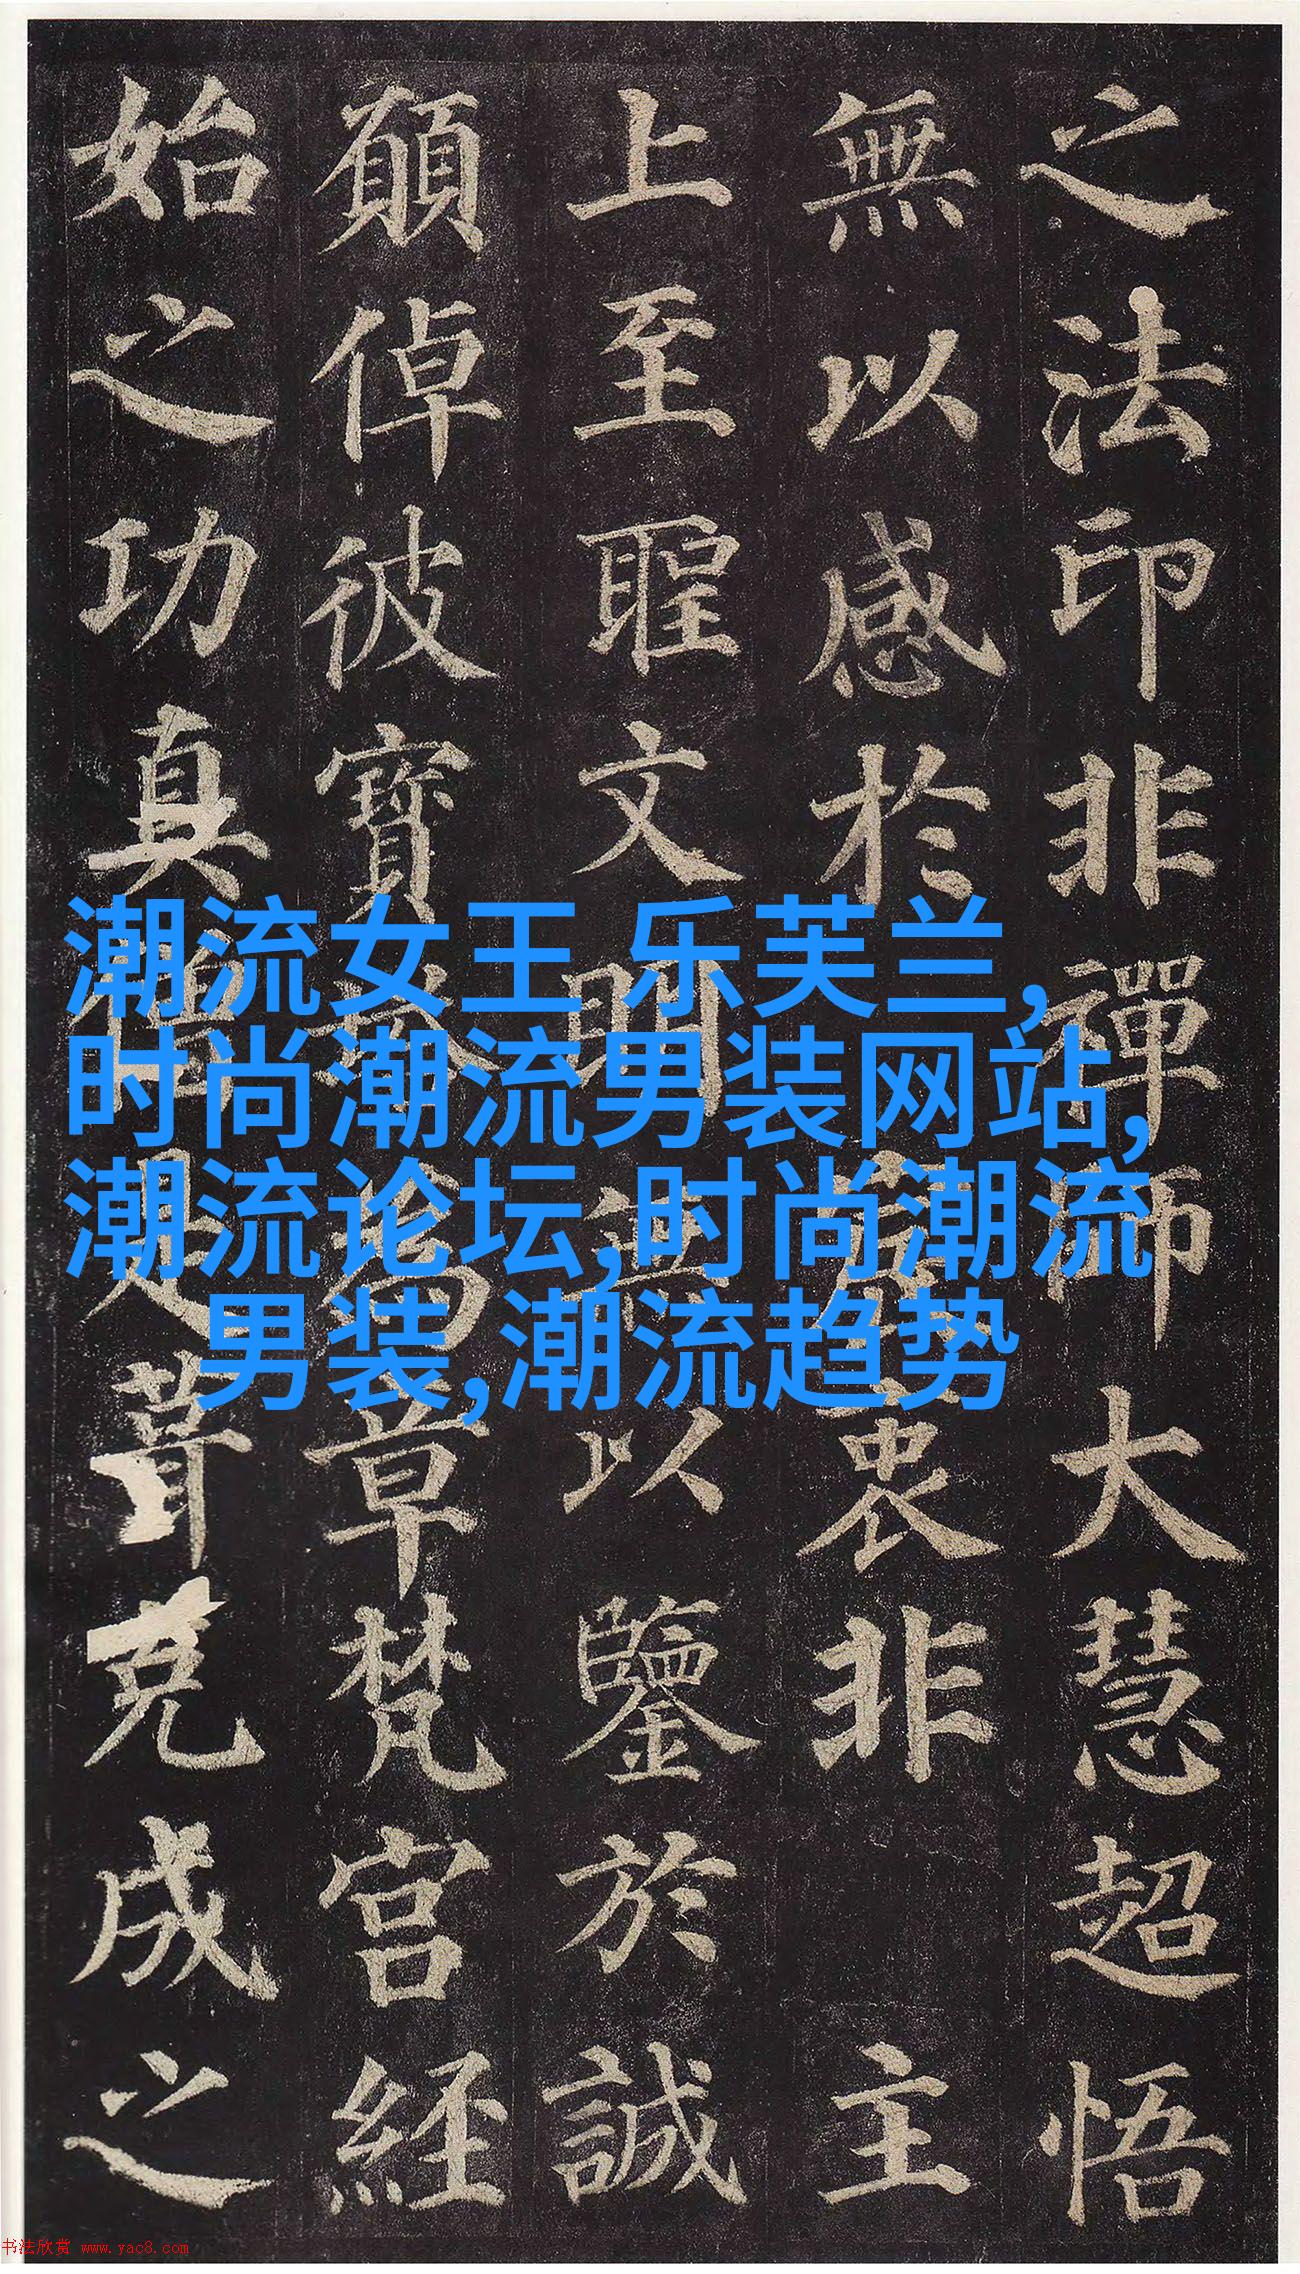 之法印非禪師大慧超悟
無以感於宸衷非主
上至聖文明無以鑒於誠
願倬彼寶塔為章梵宮經
始之功真僧是葺克成之
潮流女王 乐芙兰,
时尚潮流男装网站,
潮流论坛,时尚潮流
男装,潮流趋势
书法欣赏 www.yac8.com